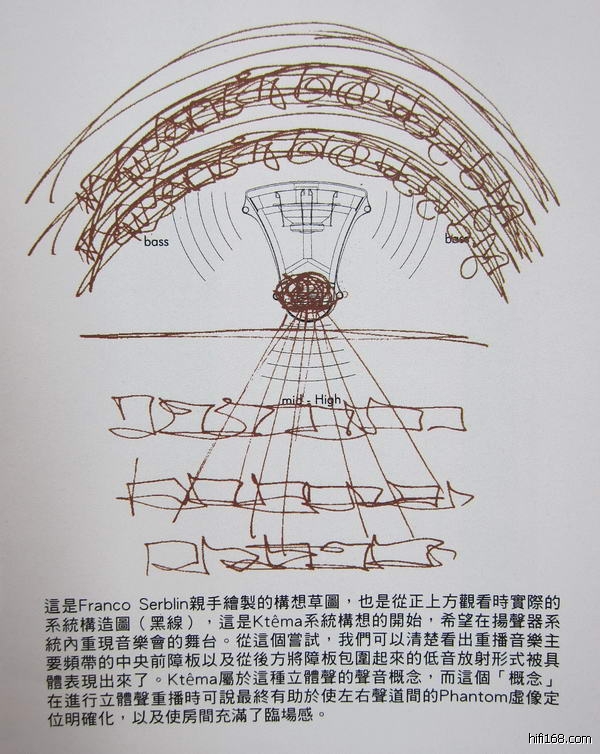 bass
bass
mid - High
這是Franco Serblin親手繪製的構想草圖，也是從正上方觀看時實際的
系統構造圖（黑線），這是Ktêma系統構想的開始，希望在揚聲器系
統內重現音樂會的舞台。從這個嘗試，我們可以清楚看出重播音樂主
要頻帶的中央前障板以及從後方將障板包圍起來的低音放射形式被具
體表現出來了。Ktêma屬於這種立體聲的聲音概念，而這個「概念」
在進行立體聲重播時可說最終有助於使左右聲道間的Phantom虛像定
位明確化，以及使房間充滿了臨場感。
hifi168.com